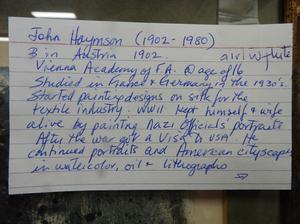 John Haymson (1902 - 1980)
B in Austria 1902. a i r l w/flute
Vienna Academy of F.A. @ age of 16
Studied in France & Germany in the 1930's.
Started painting designs on silk for the
textile industry. WWII kept himself & wife
alive by painting Nazi officials' portraits
After the war got a visa to USA. He
continued portraits and American cityscapes
in watercolor, oil & lithographs